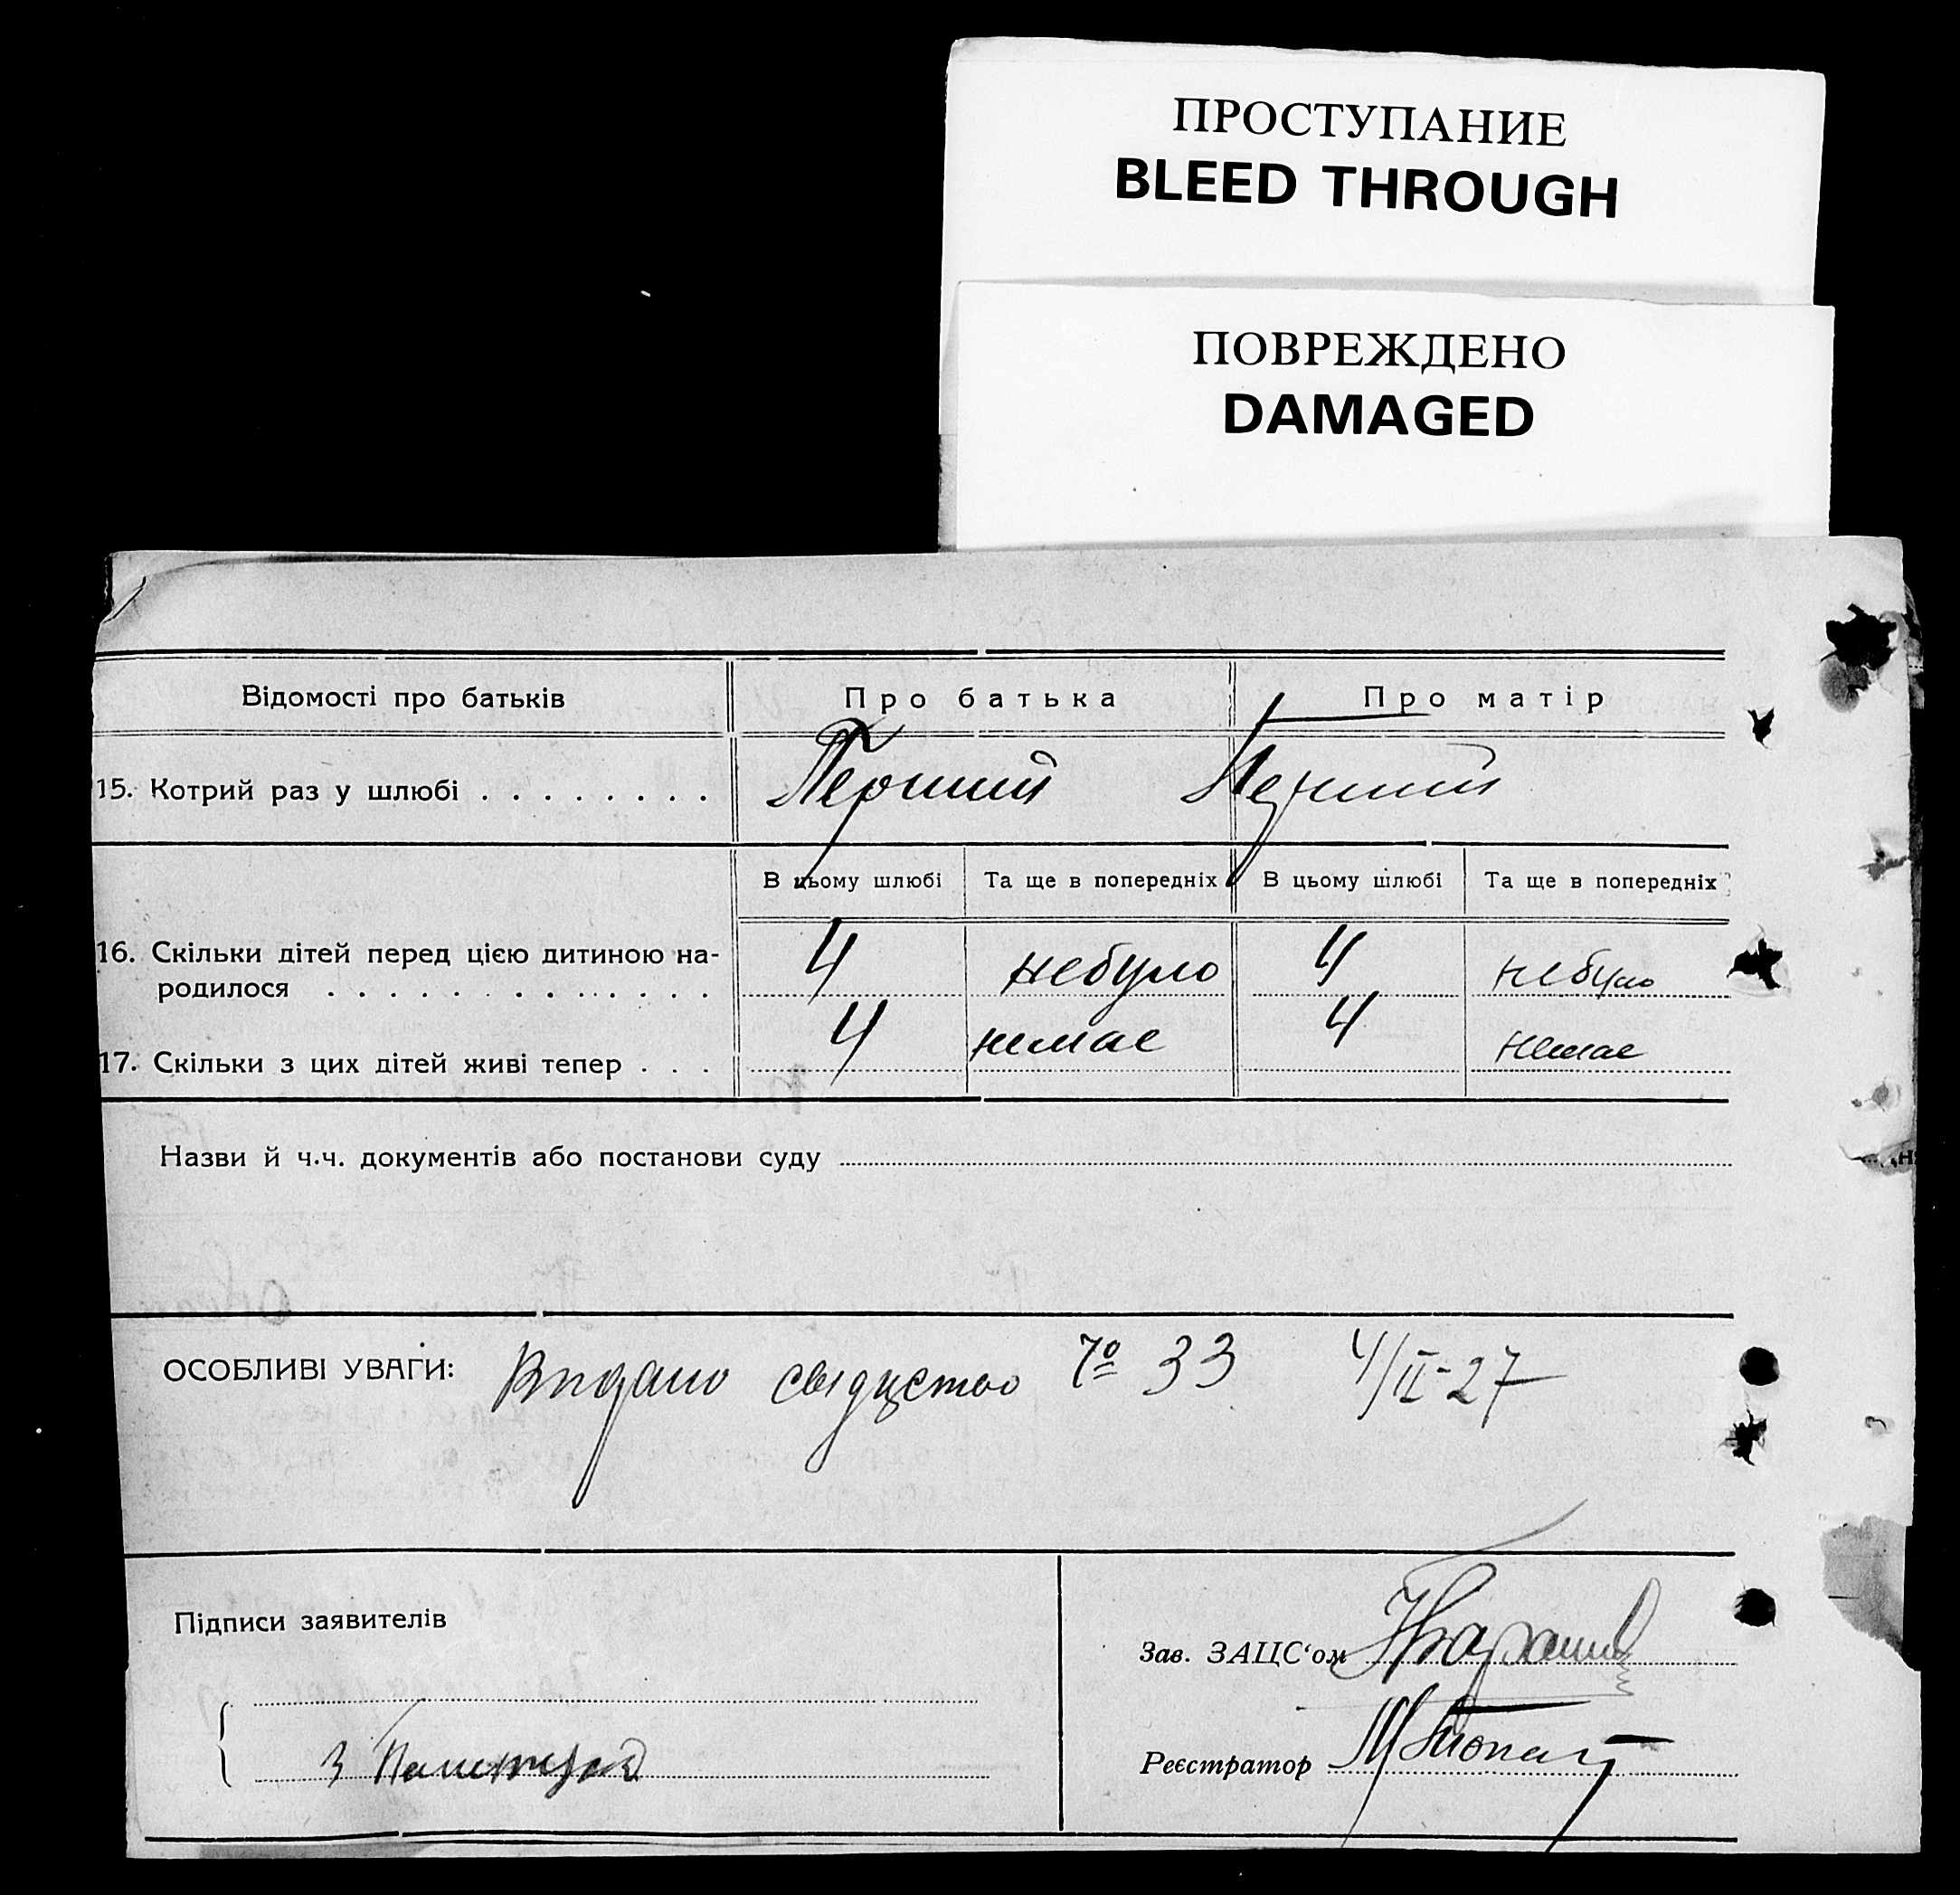 ПРОСТУПАНИЕ
BLEED THROUGH
ПОВРЕЖДЕНО
DAMAGED
Відомості про батьків Про батька Про матір
15. Котрий раз у шлюбі . . . . . . . . Перший Перший
В цьому шлюбі Та ще в попередніх В цьому шлюбі Та ще в попередніх
16. Скільки дітей перед цією дитиною на-
родилося . . . . . . . . . . . . . . 4 небуло 4 небуло
17. Скільки з цих дітей живі тепер . . . 4 немає 4 немає
Назви й ч.ч. документів або постанови суду
ОСОБЛИВІ УВАГИ: Видано свідцство № 33 4/II-27
Підписи заявителів
Зав. ЗАЦС‘ом
Реєстратор